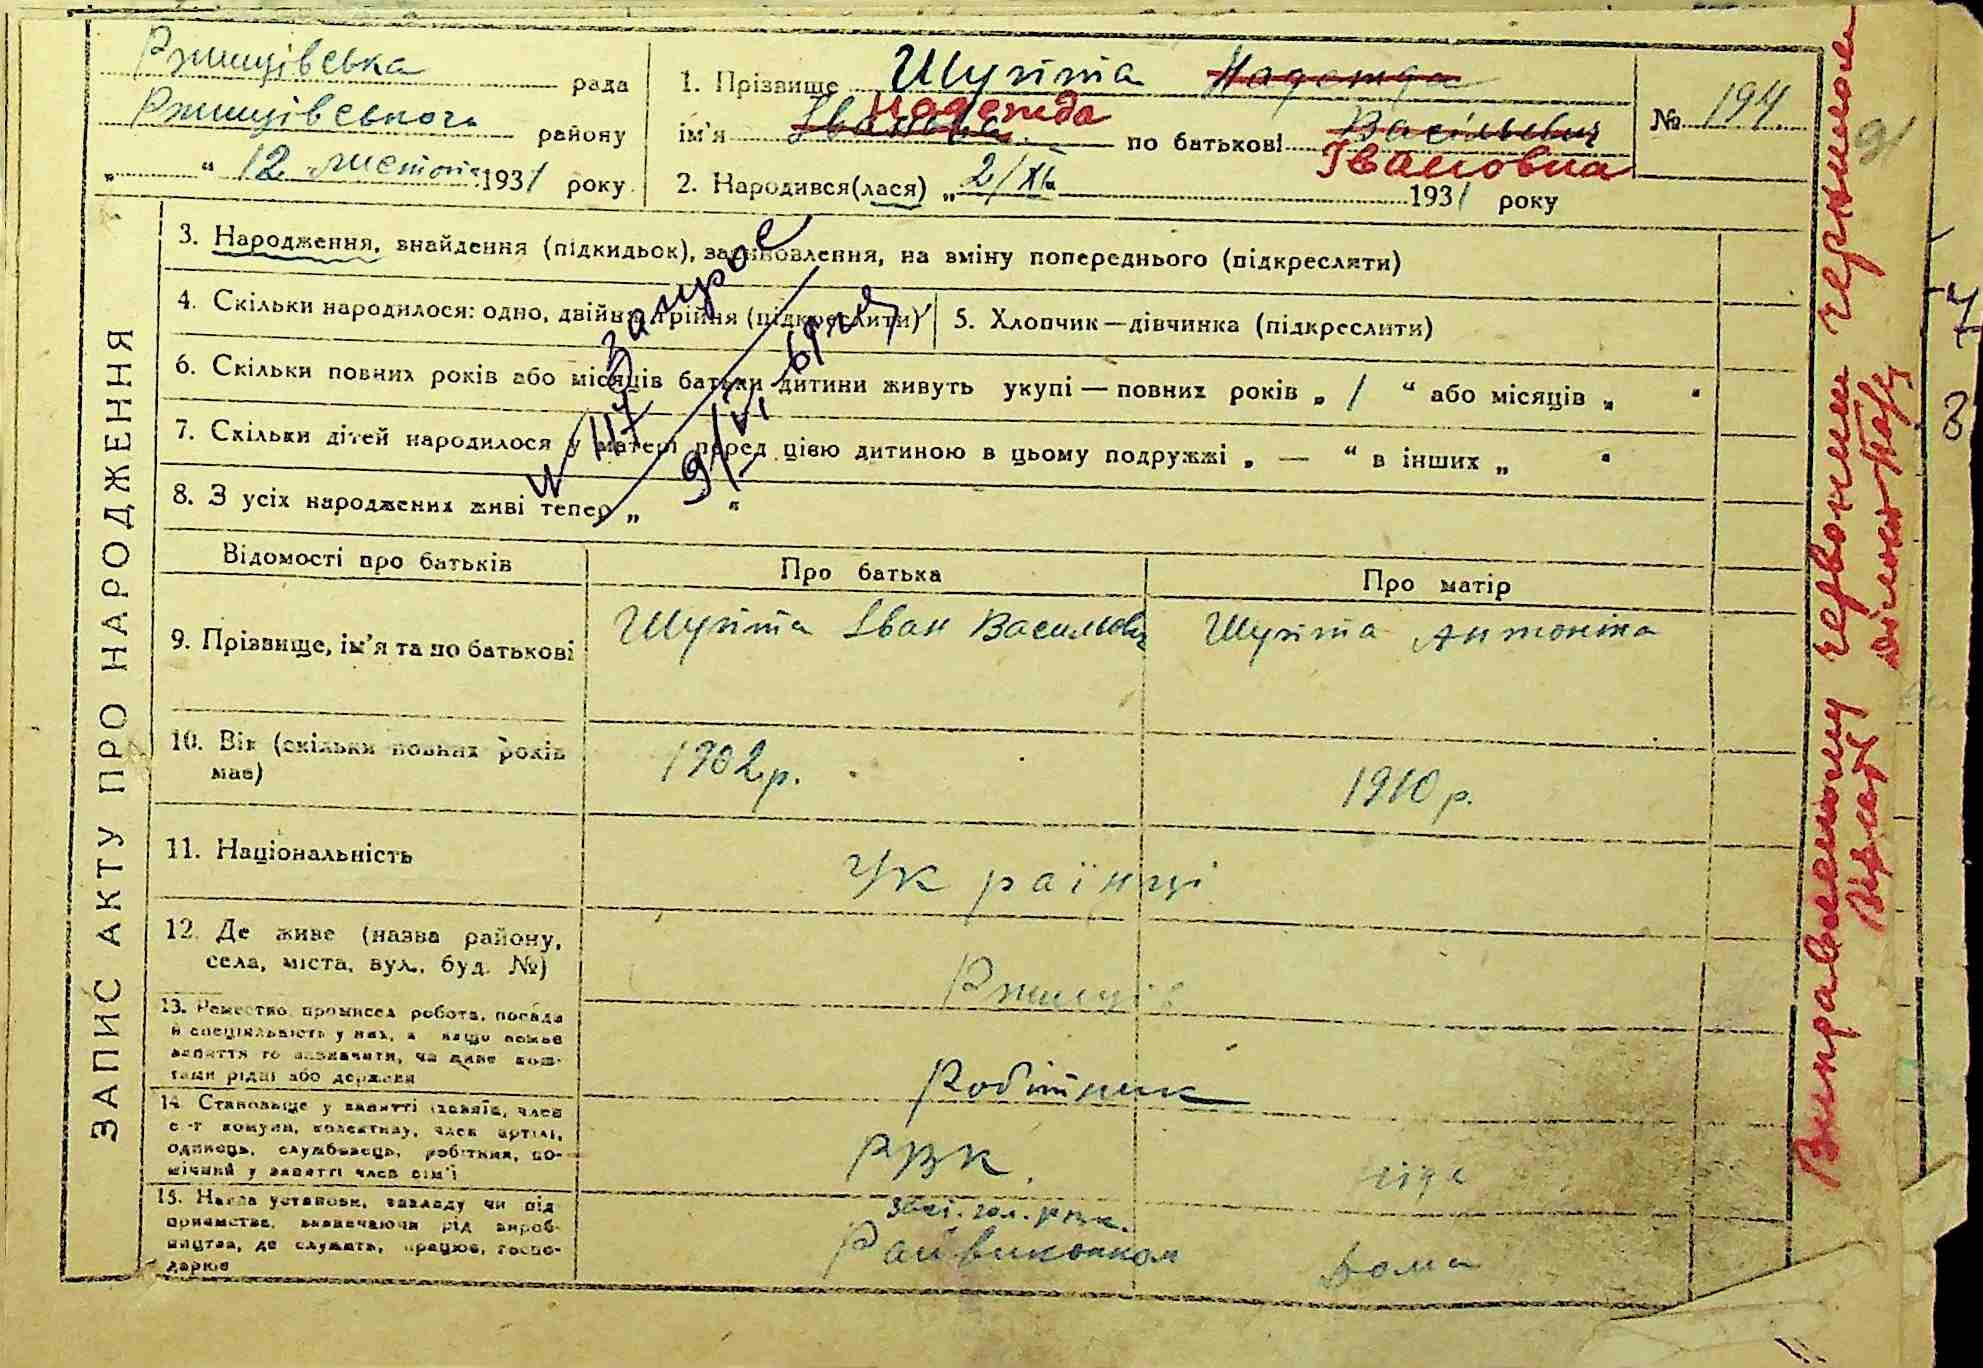 Ржищівська рада
Ржищівського району
„ “ 12 листопа 1931 року
1. Прізвище Шуліта Надежда
ім'я Івановна Надежда по батькові Васільевич Івановна
2. Народився(лася) „ 2/XI 1931 року
№ 194
91
ЗАПИС АКТУ ПРО НАРОДЖЕННЯ
3. Народження, знайдення (підкидьок), заміновлення, на зміну попереднього (підкреслити)
4. Скільки народилося: одно, двійня, трійня (підкреслити) 5. Хлопчик—дівчинка (підкреслити)
6. Скільки повних років або місяців батьки дитини живуть укупі — повних років „ 1 “ або місяців „ “
7. Скільки дітей народилося у матері перед цією дитиною в цьому подружжі „ — “ в інших „ “
8. З усіх народжених живі тепер „ “
запрос
Відомості про батьків Про батька Про матір
9. Прізвище, ім'я та по батькові Шуліта Іван Васильович Шуліта Антоніна
10. Вік (скільки повних років має) 1902 р. 1910 р.
11. Національність Українці
12. Де живе (назва району, села, міста, вул., буд. №) Ржищів
13. Ремество, промисел, робота, посада й спеціяльність у них, а якщо немає заняття то зазначити, чи живе коштами рідні або держави
Робітник
14. Становище у занятті (хазяїн, член с-г комуни, колективу, член артілі, одинець, службовець, робітник, помічний у занятті член сім'ї
РВК.
15. Назва установи, закладу чи підприємства, зазначаючи рід виробництва, де служить, працює, господарює
Райвиконком Дома
Виправленному червоним чернилом